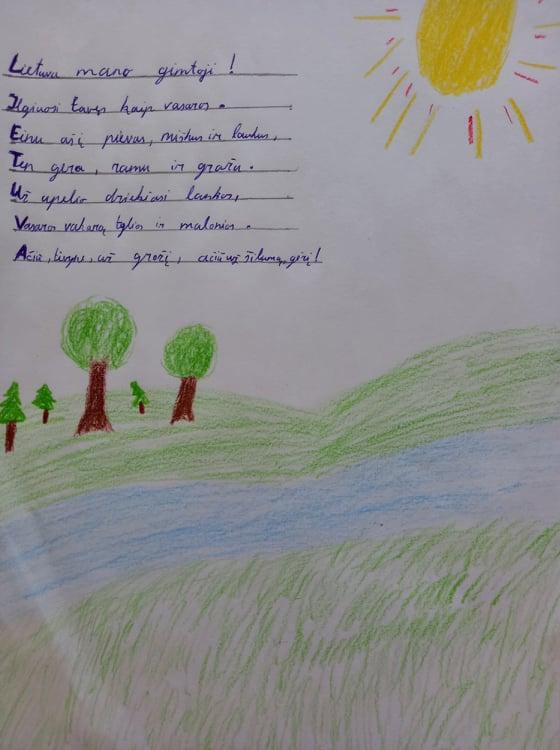 Lietuva mano gimtoji !
Ilgiuosi tavęs kaip vasaros .
Einu aš į pievas, miškus ir laukus,
Ten gera, ramu ir gražu.
Už upelio driekiasi lankos,
Vasaros vakarą tylios ir malonios.
Ačiū, tėvyne, už grožį, ačiū už šilumą, gėrį!